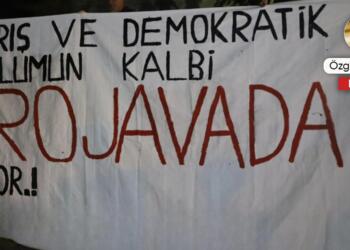 RIŞ VE DEMOKRATİK
LUMUN KALBİ
ROJAVADA
OR.!
Özg